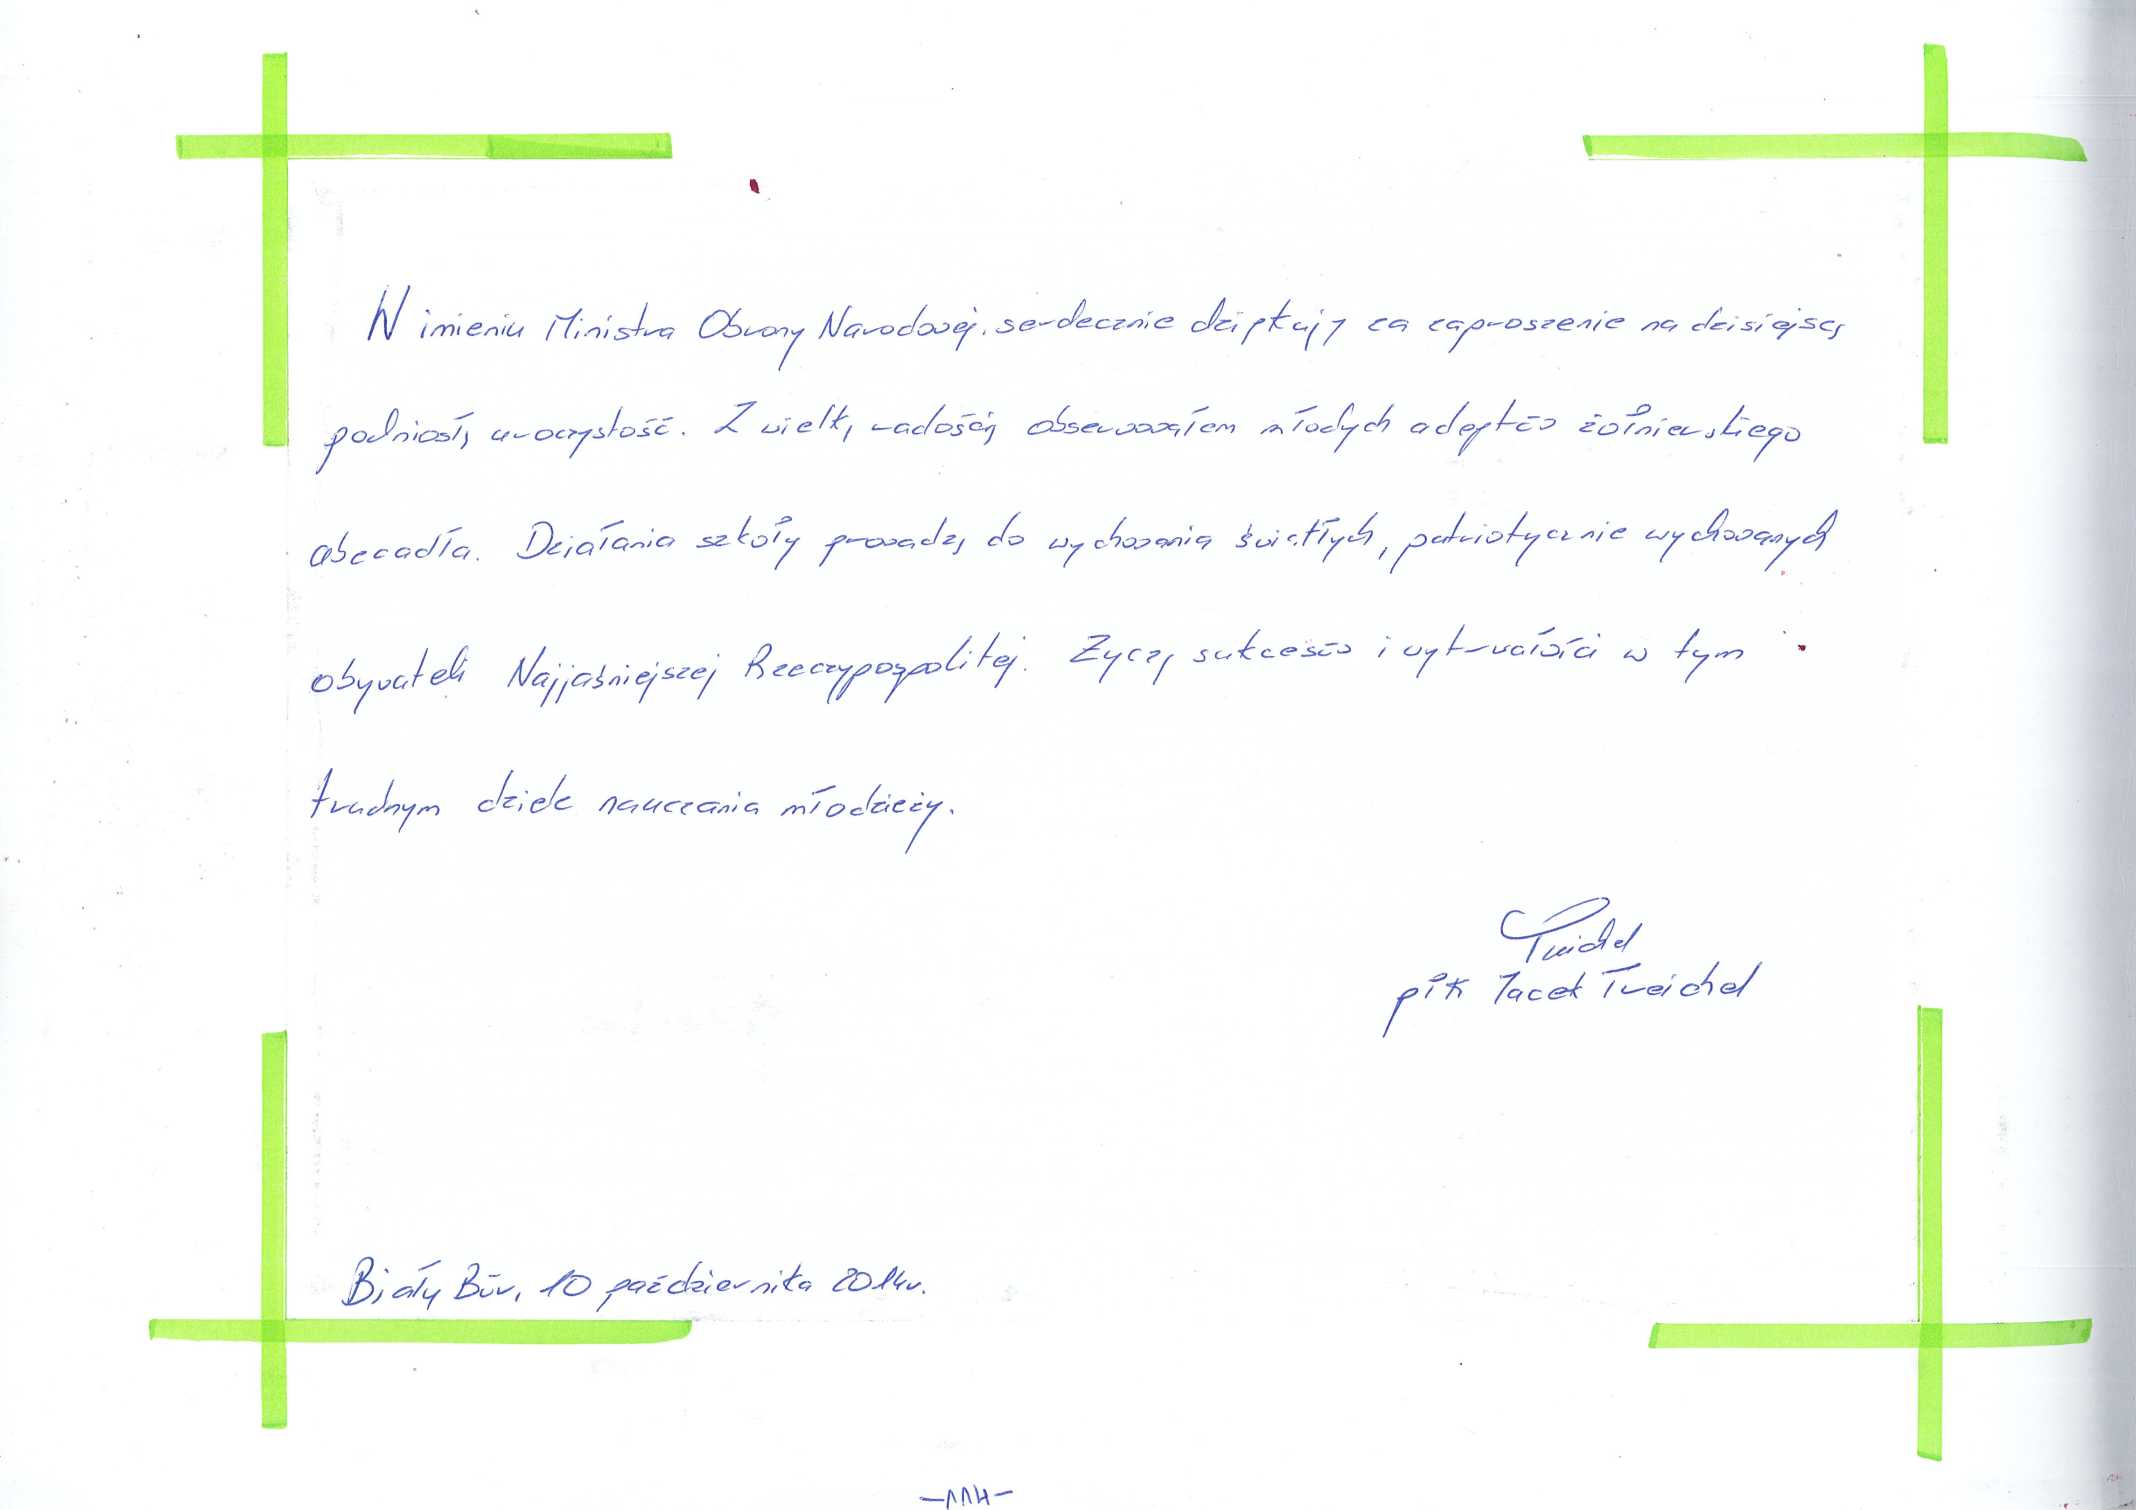 W imieniu Ministra Obrony Narodowej. serdecznie dziękuję za zaproszenie na dzisiejszą
podniosłą uroczystość. Z wielką radością obserwowałem młodych adeptów żołnierskiego
abecadła. Działania szkoły prowadzą do wychowania światłych, patriotycznie wychowanych
obywateli Najjaśniejszej Rzeczypospolitej. Życzę sukcesów i wytrwałości w tym
trudnym dziele nauczania młodzieży.
Treichel
płk Jacek Treichel
Biały Bór, 10 października 2014r.
-114-